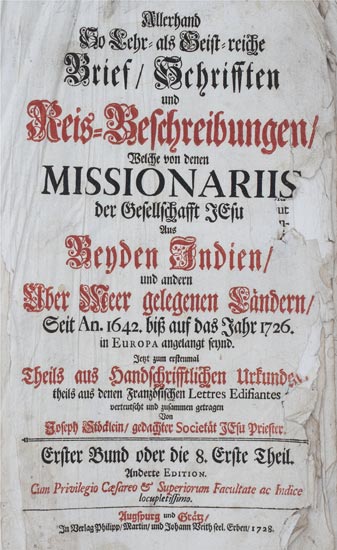 Allerhand
So Lehr- als Geist-reiche
Brief/ Schrifften
und
Reis-Beschreibungen/
Welche von denen
MISSIONARIIS
der Gesellschafft JEsu
Aus
Beyden Indien/
und andern
Uber Meer gelegenen Ländern/
Seit An. 1642. biß auf das Jahr 1726.
in EUROPA angelangt seynd.
Jetzt zum erstenmal
Theils aus Handschrifftlichen Urkunden
theils aus denen Französischen Lettres Edifiantes
verteutscht und zusammen getragen
Von
Joseph Stöcklein/ gedachter Societät JEsu Priester.
Erster Bund oder die 8. Erste Theil.
Anderte EDITION.
Cum Privilegio Cæsareo & Superiorum Facultate ac Indice
locupletissimo.
Augspurg und Grätz/
In Verlag Philipp/ Martin/ und Johann Veith seel. Erben/ 1728.